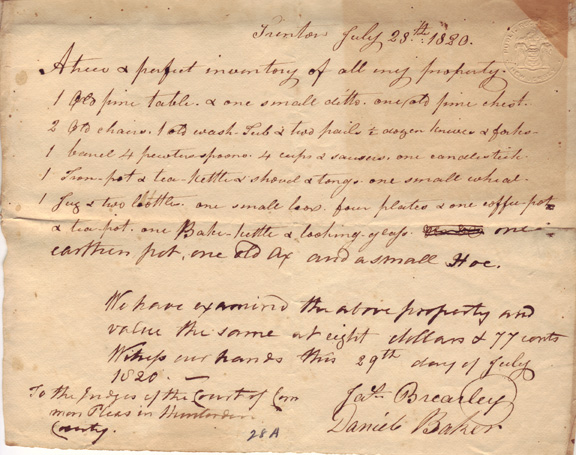 Trenton July 28th. 1820.
A true & perfect inventory of all my property.
1 Old pine table. & one small ditto. one old pine chest.
2 Old chairs. 1 old wash. Tub & two pails ½ dozen knives & forks.
1 barrel 4 pewter spoons. 4 cups & saucers. one candlestick
1 Iron-pot & tea-kettle & shovel & tongs. one small wheel.
1 Jug & two bottles. one small box. four plates & one coffee-pot
& tea-pot. one Bake-kettle & looking-glass. one
earthen pot, one old Ax and a small Hoe.
We have examined the above property and
value the same at eight dollars & 77 cents
Witness our hands this 29th day of July
1820. —
To the Judges of the Court of Com
mon Pleas in Hunterdon
County.
Jas. Brearley
Daniel Baker
28A